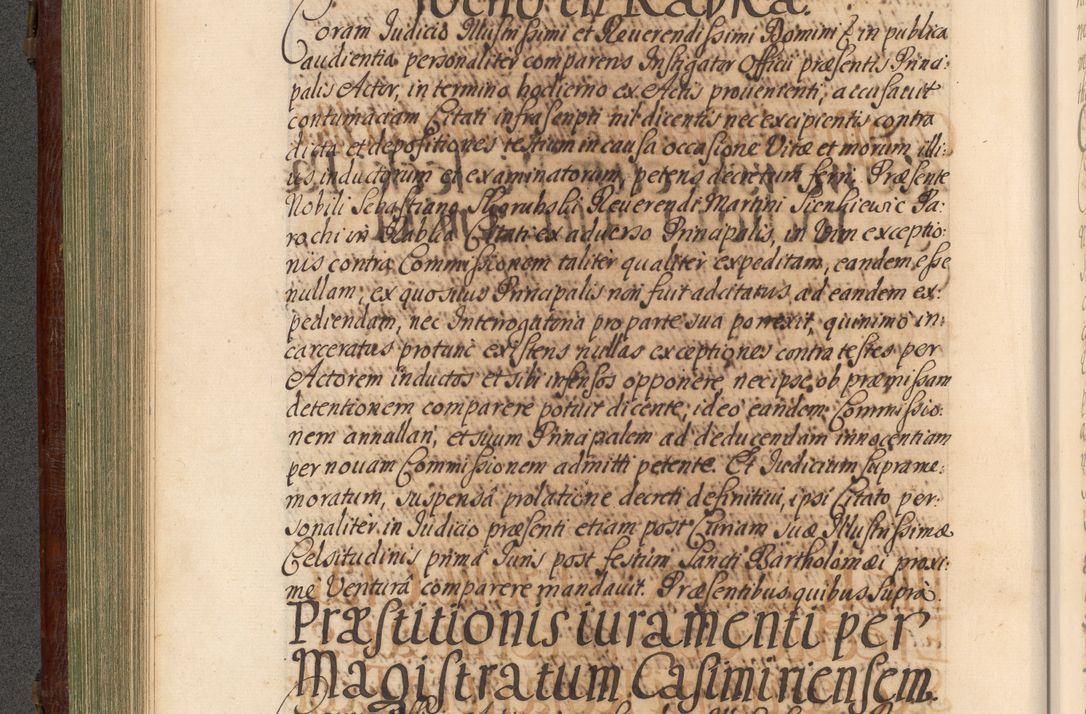 in Rabka.
Coram Judicio Illustrissimi et Reverendissimi Domini in publica
audientia personaliter comparens Instigator Officii præsentis Princi:
palis Actor, in termino hodierno ex Actis provenienti, accusavit
contumaciam Citati infrascripti nil dicentis nec excipientis contra
dicta et depositiones testium in causa occasione Vitæ et morum illi:
us inductorum et examinatorum, petens decretum ferri. Præsente
Nobili Sebastiano Reverendi Martini Sienkiewic Pa:
rochi in Rabka Citati ex adverso Principalis, in Vim exceptio:
nis contra Commissionem taliter qualiter expeditam, eandem esse
nullam, ex quo suus Principalis non fuit adcitatus ad eandem ex:
pediendam, nec Interrogatoria pro parte sua porrexit, quinimo in:
carceratus pro tunc existens nullas exceptiones contra testes per
Actorem inductos et sibi infensos opponere, nec ipse ob præmissam
detentionem comparere potuit dicente, ideo eandem Commissio:
nem annullari, et suum Principalem ad deducendam innocentiam
per novam Commissionem admitti petente. Et Judicium supra me:
moratum, suspensâ prolatione decreti definitivi, ipsi Citato per:
sonaliter in Judicio præsenti etiam post Curiam Suæ Illustrissimæ
Celsitudinis primâ Juris post festum Sancti Bartholomæi proxi:
me Venturâ comparere mandavit. Præsentibus quibus supra.
Præstitionis iuramenti per
Magistratum Casimiriensem.